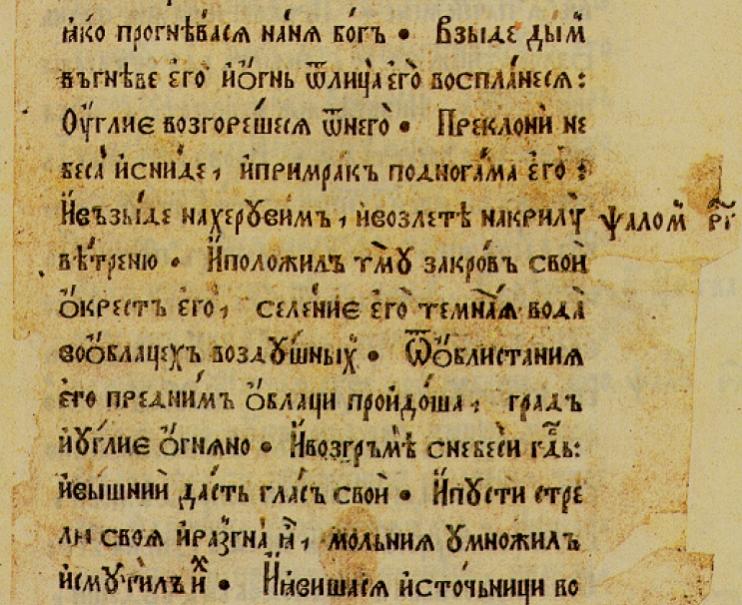 ꙗ҆ко прогнѣ́васѧ нанѧ бо́гъ • Взы́де ды́мъ
въгнѣве є҆го̀ и҆ѻ҆гнь ѿлица̀ є҆го̀ воспла́несѧ:
Оу҆́глиє возгорѣ́шесѧ ѿнего̀ • Преклони́ не
беса̀ и҆сни́де, и҆примра́къ подънога́ма є҆го̀ :
И҆възы́де нахерꙋви́мъ, и҆возлетѣ̀ накрилꙋ̀ ѱало́м рг҃і
вѣ́треню • И҆положи́лъ тмꙋ̀ закро́въ свои́
ѻ҆́крестъ є҆го̀, селе́ниє є҆го̀ те́мнаѧ вода̀
воѻ҆́блацехъ возд́ꙋшныхъ • Ѿѻ҆блиста́ниѧ
є҆го̀ предни́мъ ѻ҆́блаци проидо́ша, гра́дъ
и҆ꙋ́глиє ѻ҆́гнѧно • И҆возгрѣмѣ̀ снебесѝ гдⷭ҇ь:
и҆вы́шнии да́стъ гла́съ свои́ • И҆пꙋстѝ стре
лы своѧ̀ и҆разгна̀ и҆̀, мо́льниѧ ꙋмно́жилъ
и҆смꙋти́лъ и҆̀х • И҆ꙗ҆ви́шасѧ и҆сто́чьници во